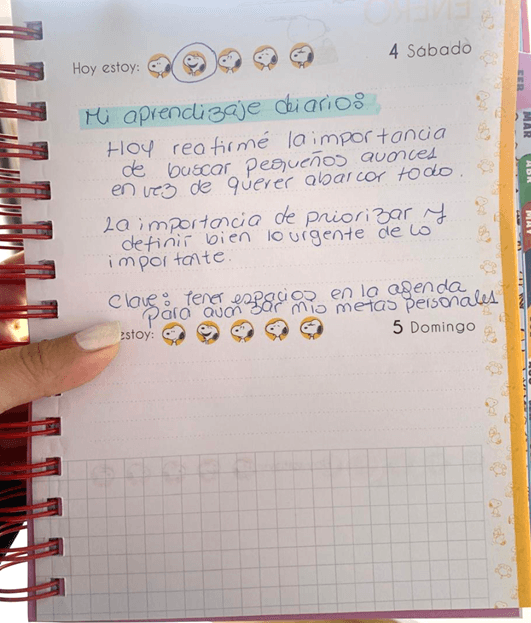 Hoy estoy:
4 Sábado
Mi aprendizaje diario:
Hoy reafirmé la importancia
de buscar pequeños avances
en vez de querer abarcar todo.
La importancia de priorizar y
definir bien lo urgente de lo
importante.
Clave: Tener espacios en la agenda
para avanzar mis metas personales
estoy:
5 Domingo